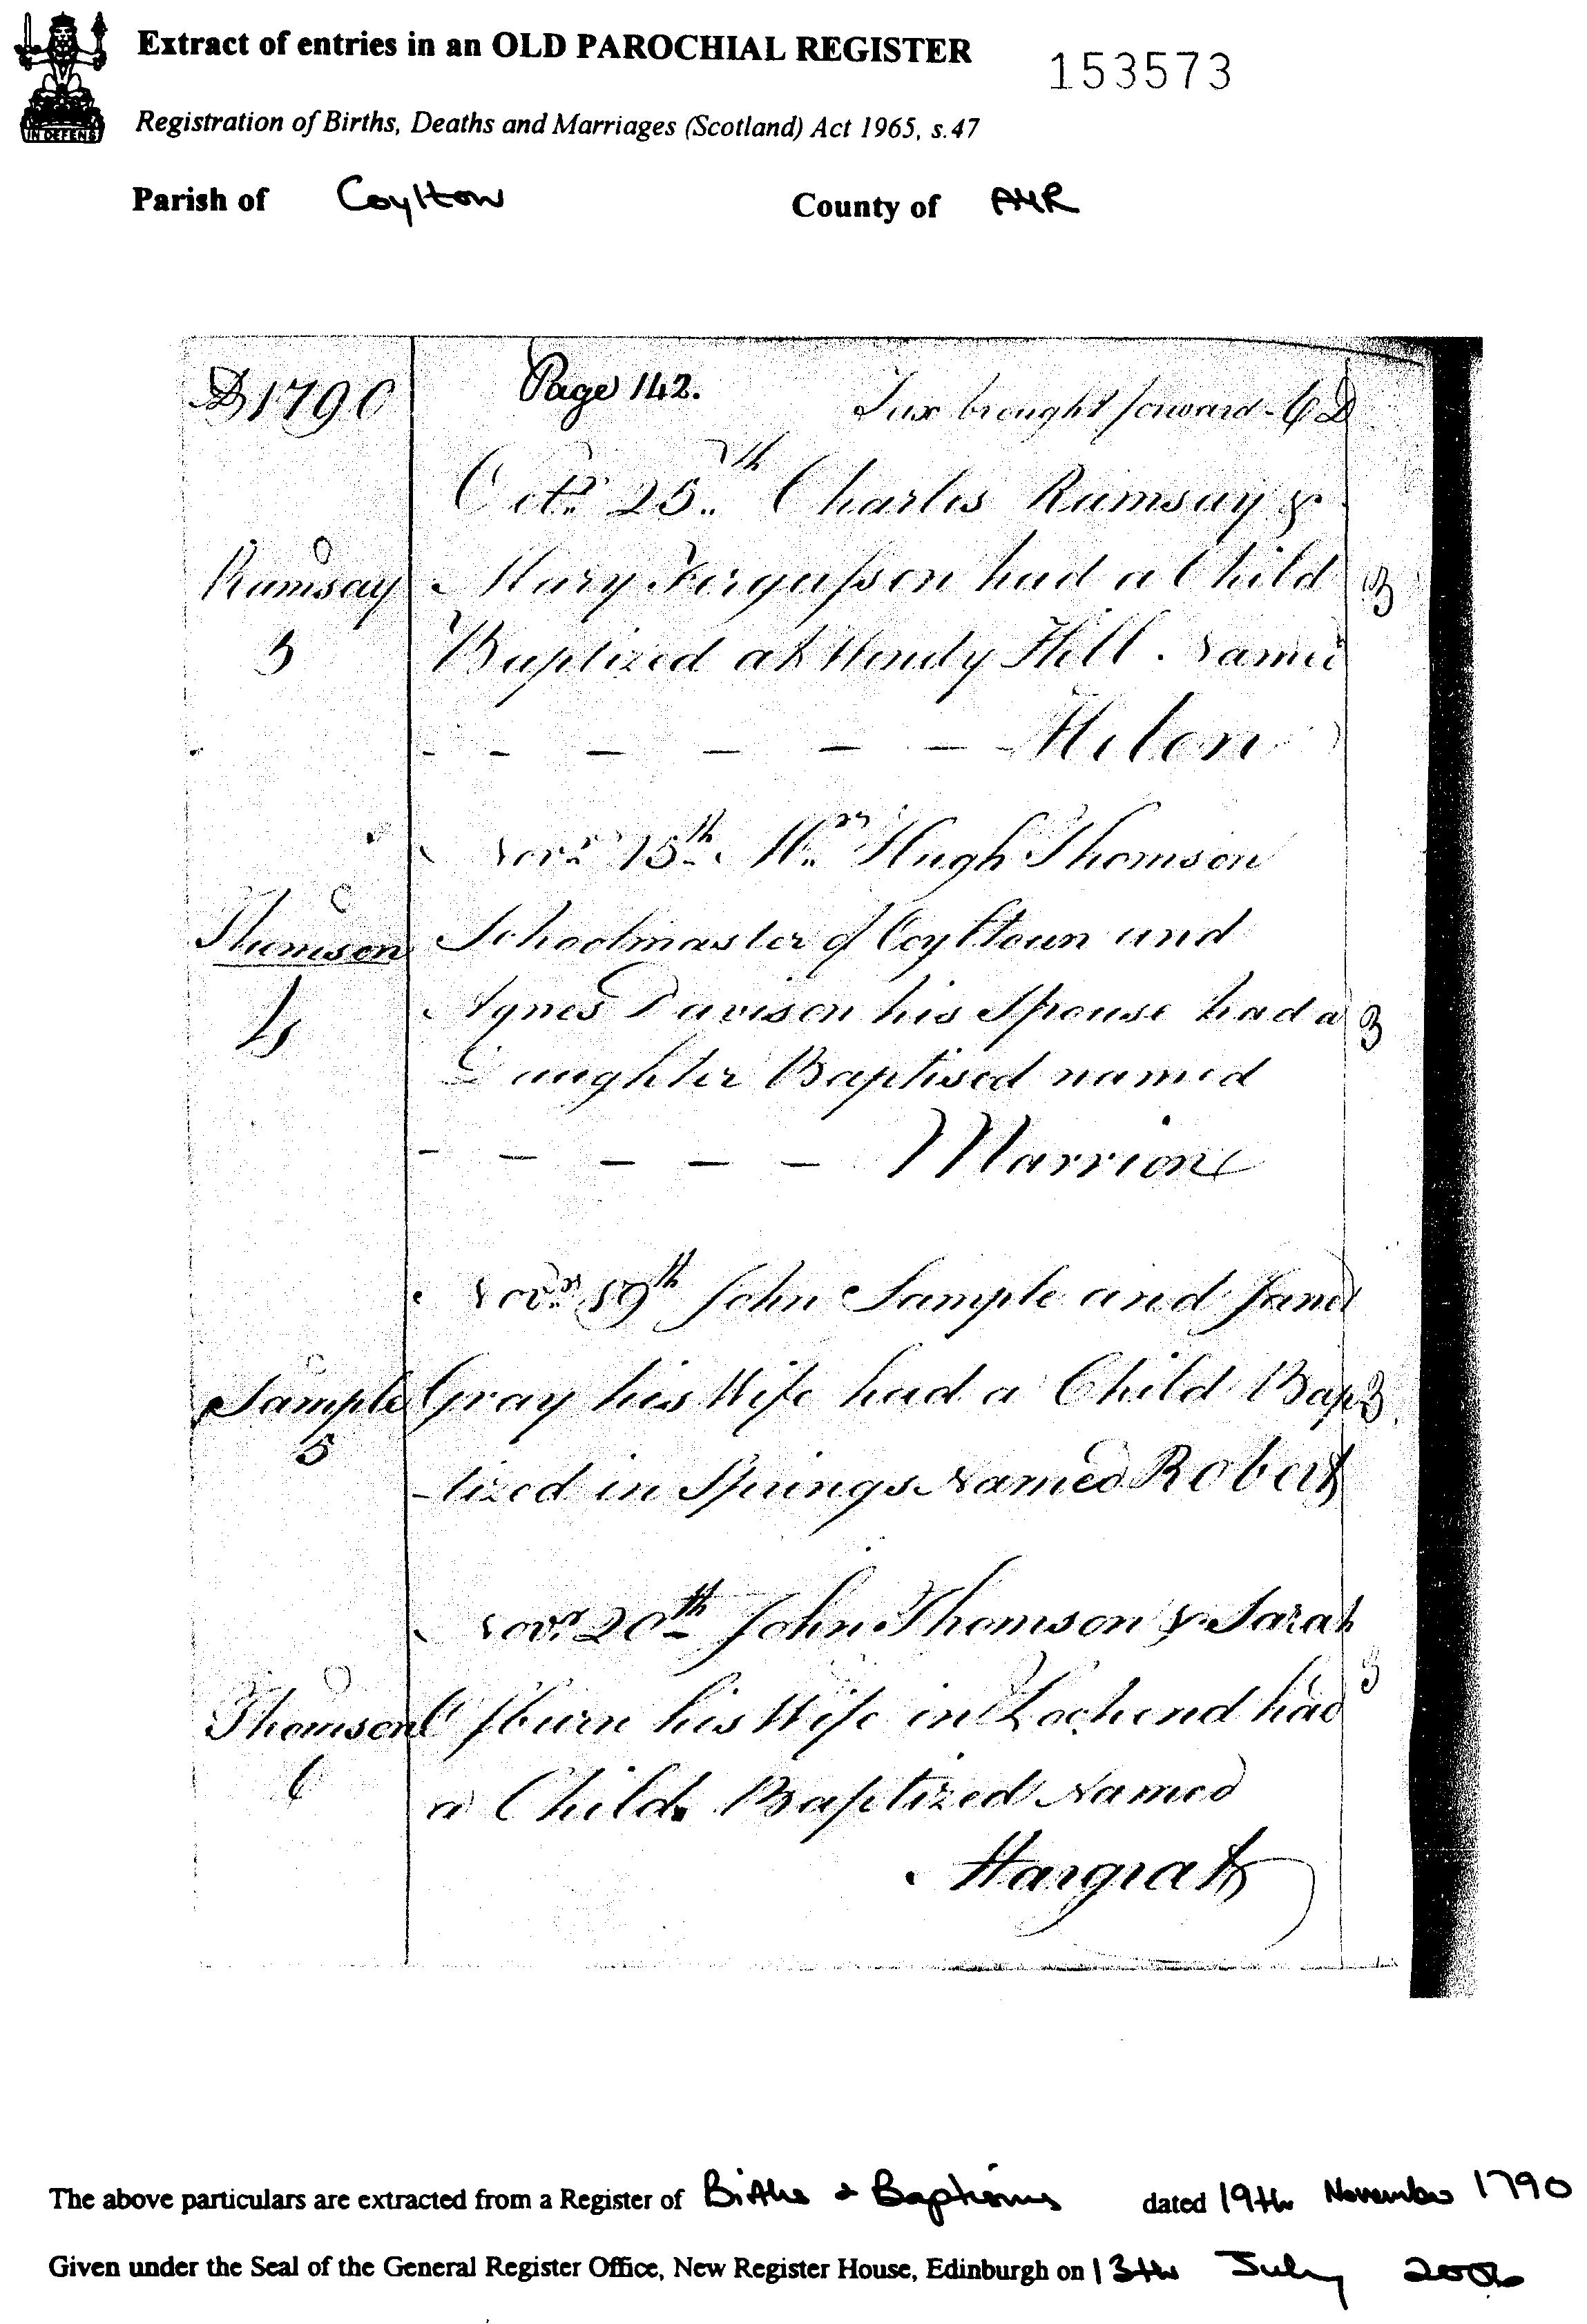 Extract of entries in an OLD PAROCHIAL REGISTER
153573
IN DEFENS
Registration of Births, Deaths and Marriages (Scotland) Act 1965, s.47
Parish of Coylton County of AYR
1790 Page 142. Tax brought forward
Octr 25th Charles Ramsay &
Ramsay Mary Fergusson had a Child 3
3 Baptized at Windy Hill. Named
Helen
Novr 15th Mr Hugh Thomson
Thomson Schoolmaster of Coyltoun and
4 Agnes Davison his Spouse had a 3
Daughter Baptised named
Marrion
Novr 19th John Sample and Janet
Sample Gray his Wife had a Child Bap 3
5 -tized in Springs Named Robert
Novr 20th John Thomson & Sarah
Thomson his Wife in Lochend had 3
6 a Child Baptized Named
Margrat
The above particulars are extracted from a Register of Births & Baptisms dated 19th November 1790
Given under the Seal of the General Register Office, New Register House, Edinburgh on 13th July 2006